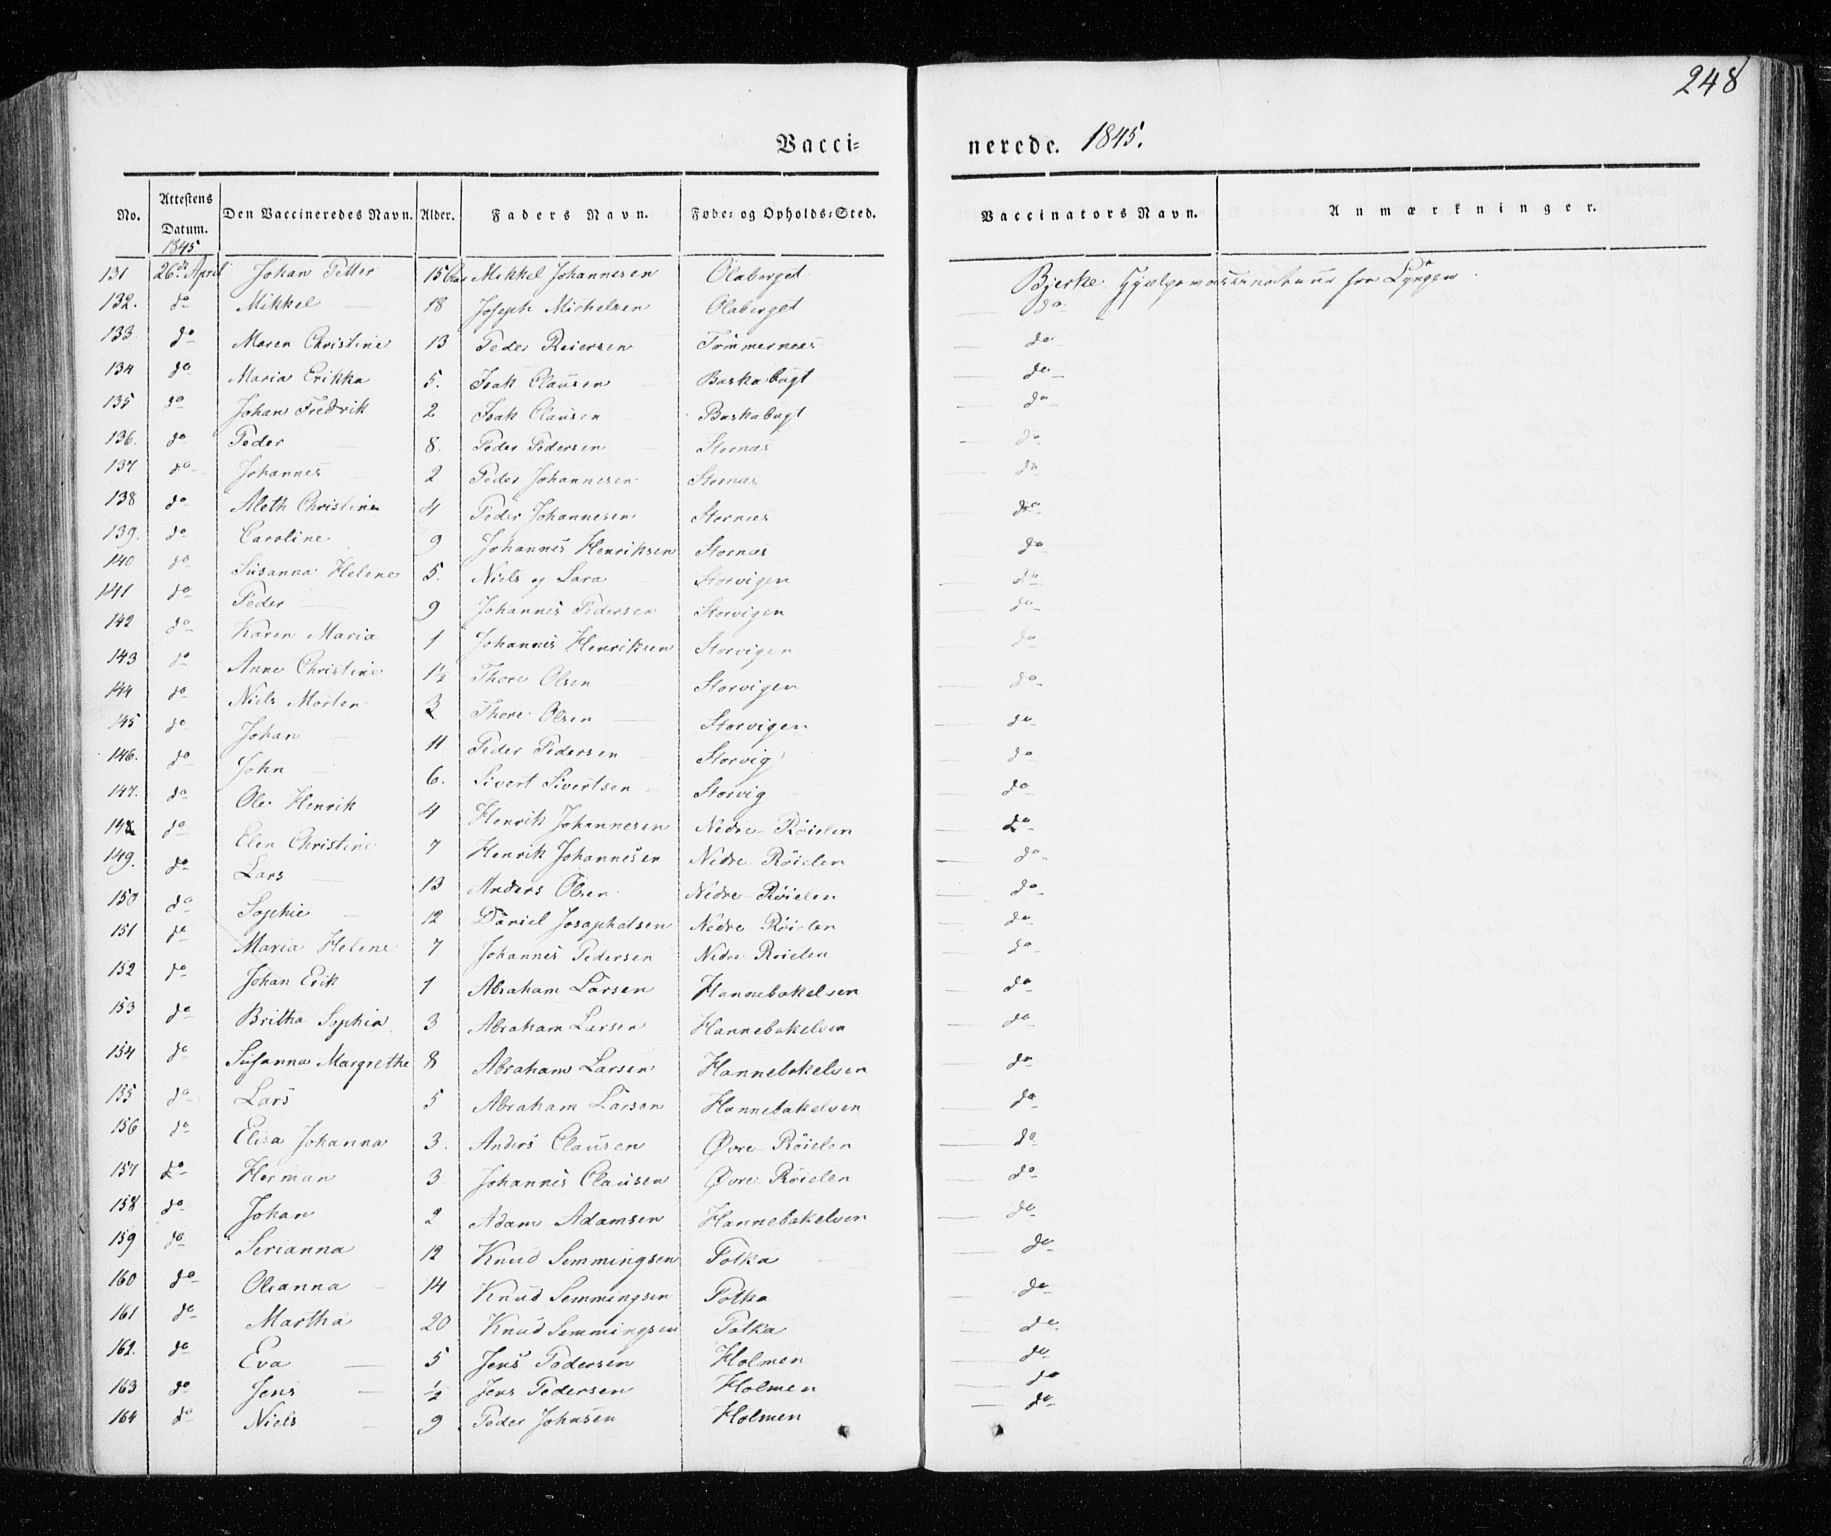 248
Vacci-
nerede. 1845.
No. | Attestens Datum. | Den Vaccineredes Navn. | Alder. | Faders Navn. | Føde- og Opholds-Sted. | Vaccinators Navn. | Anmærkninger.
1845
131 | 26de April | Johan Petter | 15 Aar | Mikkel Johannesen | Olaberget | Bjerke, Hjælpevaccinateur fra Lyngen
132. | do | Mikkel | 18 | Joseph Michelsen | Olaberget | do
133 | do | Maren Christine | 13 | Peder Reiersen | Tømmernæs | do
134 | do | Maria Erikka | 5. | Isak Clausen | Baskabugt | do
135 | do | Johan Fredrik | 2 | Isak Clausen | Baskabugt | do
136. | do | Peder | 8. | Peder Pedersen | Stornæs | do
137 | do | Johannes | 2 | Peder Johannesen | Stornæs | do
138 | do | Aleth Christine | 4 | Peder Johannesen | Stornæs | do
139. | do | Caroline | 9 | Johannes Henriksen | Stornæs | do
140 | do | Susanna Helene | 5. | Niels og Sara | Storvigen | do
141 | do | Peder | 9 | Johannes Pedersen | Storvigen | do
142 | do | Karen Maria | 1 | Johannes Henriksen | Storvigen | do
143 | do | Anne Christine | 1½ | Thore Olsen | Storvigen | do
144 | do | Niels Morten | 3 | Thore Olsen | Storvigen | do
145 | do | Johan | 11 | Peder Pedersen | Storvig | do
146. | do | John | 6. | Sivert Sivertsen | Storvig | do
147. | do | Ole Henrik | 4 | Henrik Johannesen | Nedre Røielen | do
148 | do | Elen Christine | 7 | Henrik Johannesen | Nedre Røielen | do
149. | do | Lars | 13 | Anders Olsen | Nedre Røielen | do
150 | do | Sophie | 12 | Daniel Josaphatsen | Nedre Røielen | do
151 | do | Maria Helene | 7 | Johannes Pedersen | Nedre Røielen | do
152 | do | Johan Erik | 1 | Abraham Larsen | Hannebakelven | do
153 | do | Britha Sophia | 3 | Abraham Larsen | Hannebakelven | do
154 | do | Susanna Margrethe | 8 | Abraham Larsen | Hannebakelven | do
155 | do | Lars | 5 | Abraham Larsen | Hannebakelven | do
156 | do | Elisa Johanna | 3. | Anders Clausen | Øvre Røielen | do
157 | do | Herman | 3 | Johannes Clausen | Øvre Røielen | do
158 | do | Johan | 2 | Adam Adamsen | Hannebakelven | do
159 | do | Serianna | 12 | Knud Semmingsen | Potka | do
160 | do | Oleanna | 14 | Knud Semmingsen | Potka | do
161 | do | Martha | 20 | Knud Semmingsen | Potka | do
162. | do | Eva | 5 | Jens Pedersen | Holmen | do
163 | do | Jens | ½ | Jens Pedersen | Holmen | do
164 | do | Niels | 9 | Peder Johnsen | Holmen | do